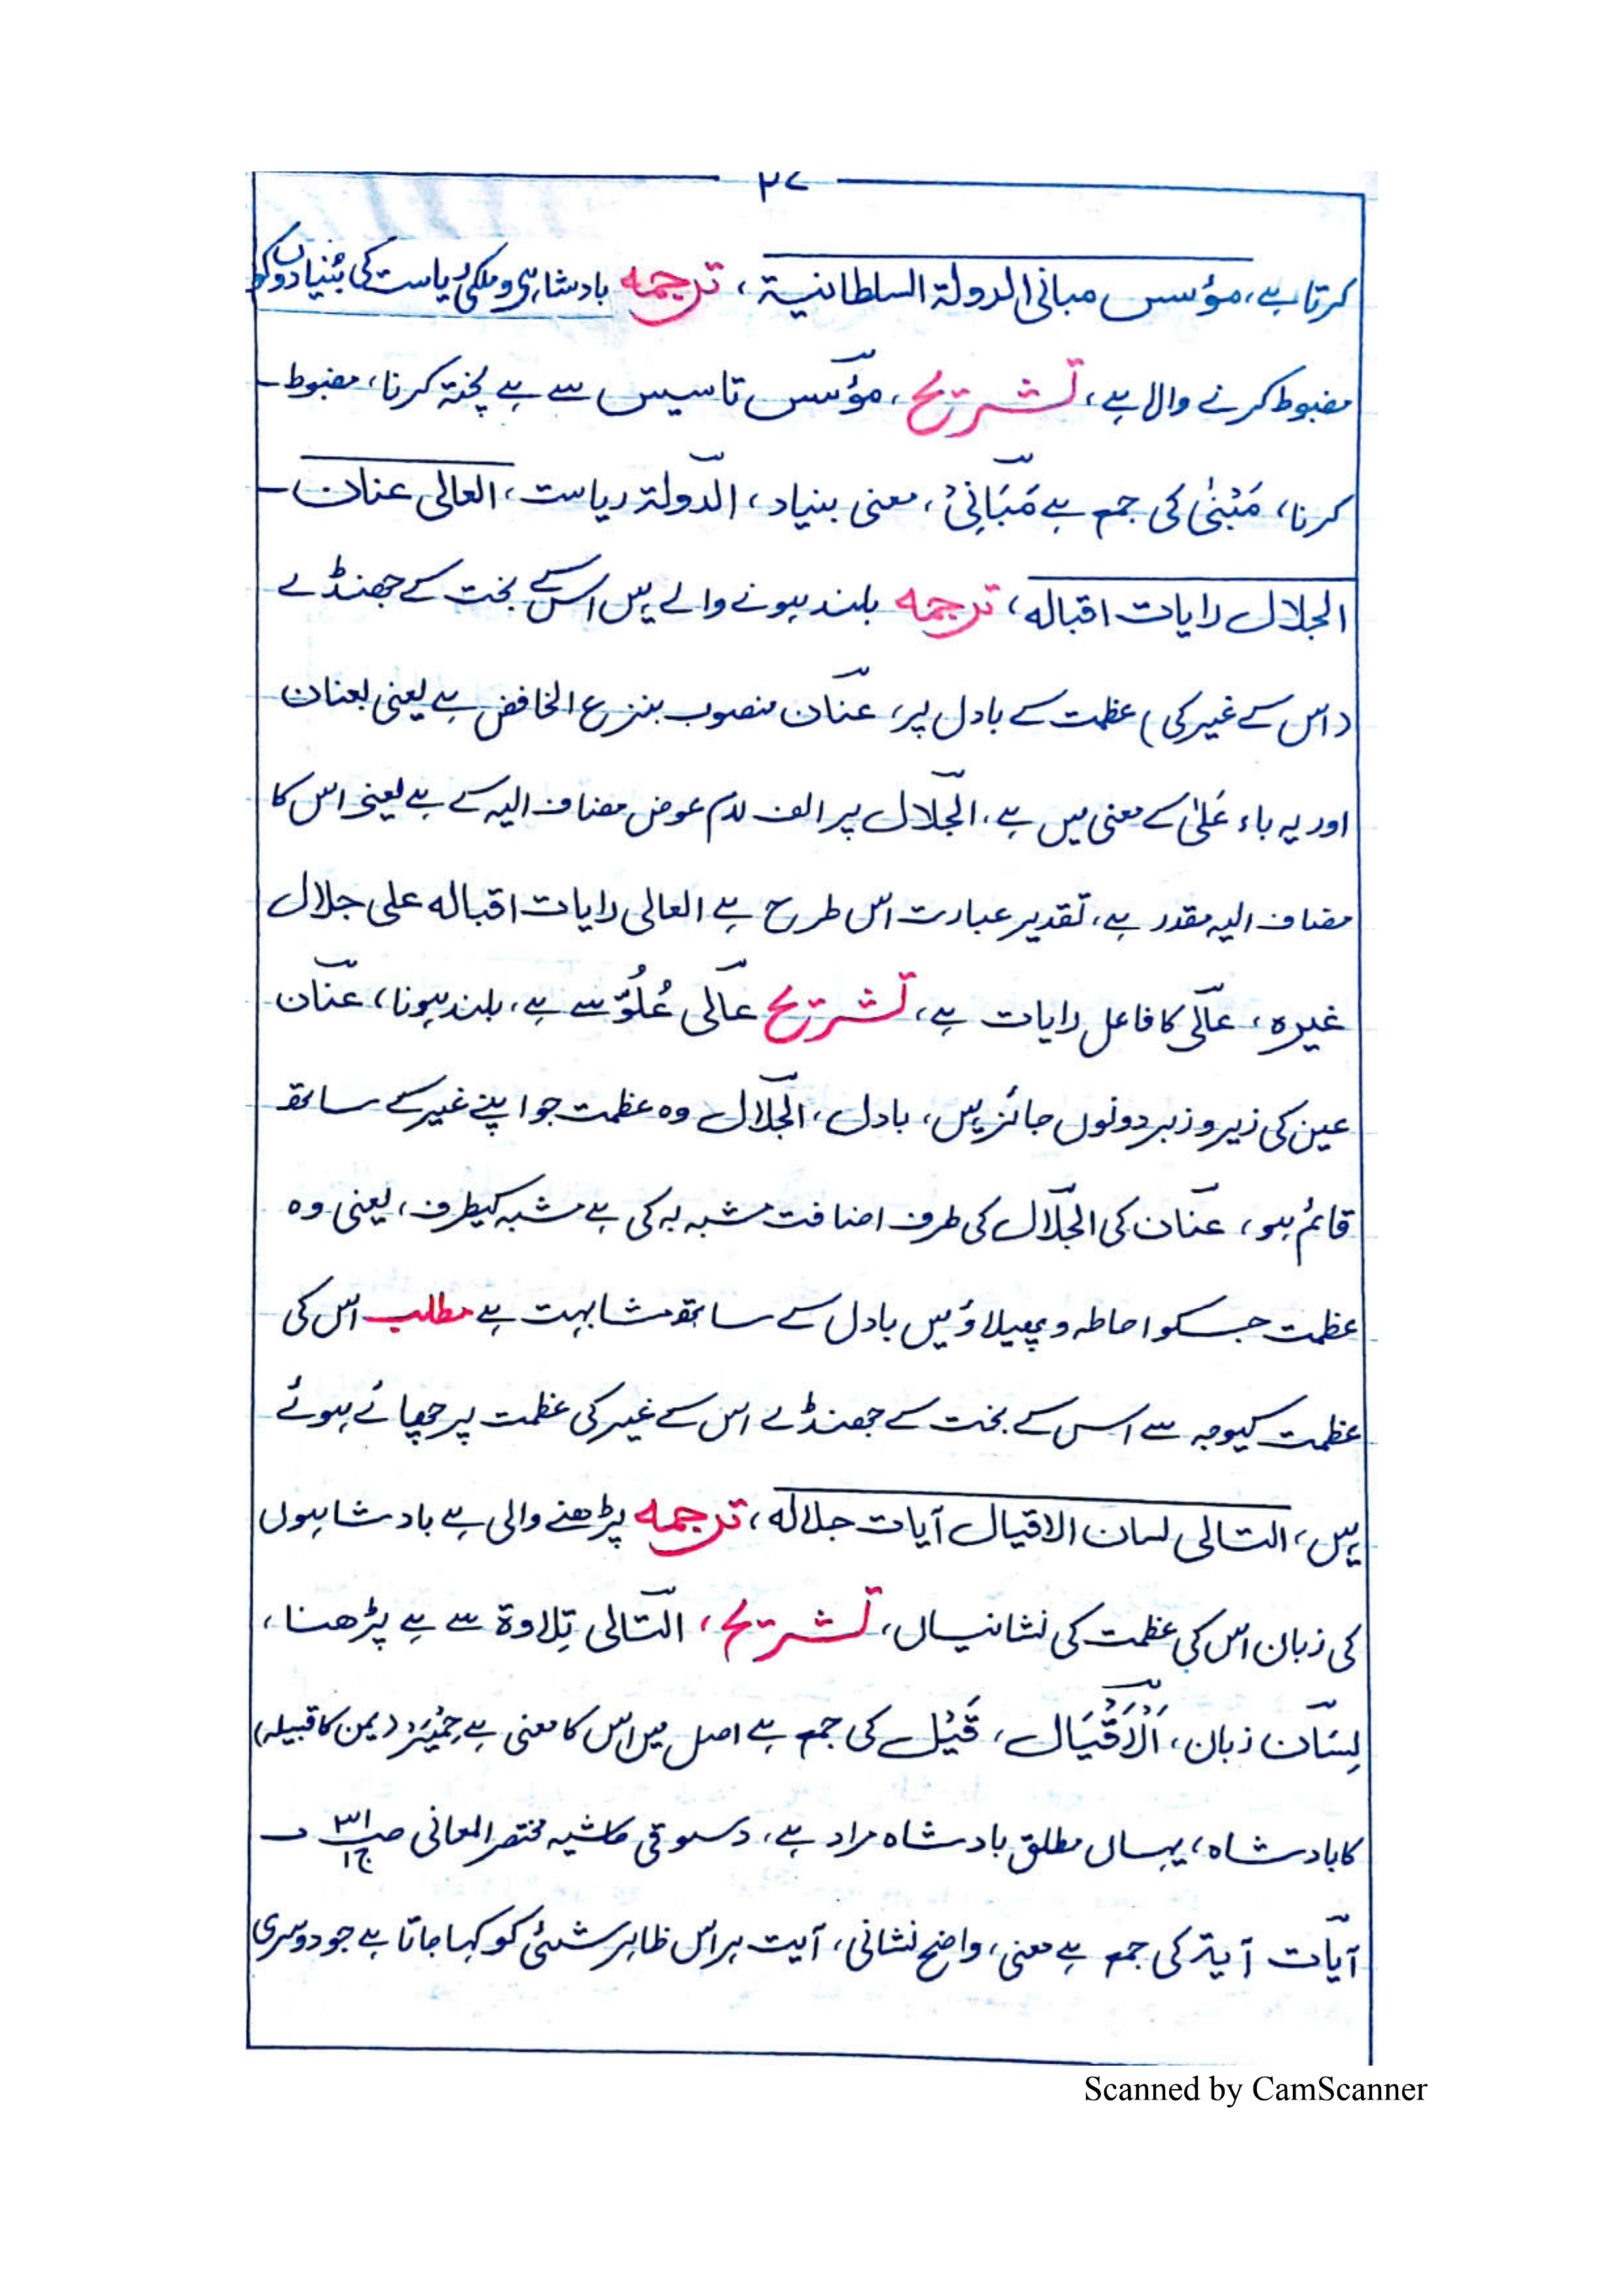 ٢٧
کرتا ہے، مؤسس مبانی الدولة السلطانیة، ترجمہ بادشاہی و ملکی ریاست کی بُنیادوں کو
مضبوط کرنے والا ہے، تشریح، مؤسس تاسیس سے ہے پختہ کرنا، مضبوط
کرنا، مَبْنٰی کی جمع ہے مَبَانِیْ، معنی بنیاد، الدولة ریاست، العالی عنان
الجلال رایات اقباله، ترجمہ بلند ہونے والے ہیں اس کے بخت کے جھنڈے
(اس کے غیر کی) عظمت کے بادل پر، عنان منصوب بنزع الخافض ہے یعنی بعنان
اور یہ باء عَلٰی کے معنی میں ہے، الجلال پر الف لام عوض مضاف الیہ کے ہے یعنی اس کا
مضاف الیہ مقدر ہے، تقدیر عبارت اس طرح ہے العالی رایات اقباله علی جلال
غیرہ، عالی کا فاعل رایات ہے، تشریح عالی عُلُوّ سے ہے، بلند ہونا، عنان
عین کی زیر و زبر دونوں جائز ہیں، بادل، الجلال وہ عظمت جو اپنے غیر کے ساتھ
قائم ہو، عنان کی الجلال کی طرف اضافت مشبہ بہ کی ہے مشبہ کیطرف، یعنی وہ
عظمت جسکو احاطہ و پھیلاؤ میں بادل کے ساتھ مشابہت ہے مطلب اس کی
عظمت کیوجہ سے اس کے بخت کے جھنڈے اس کے غیر کی عظمت پر چھائے ہوئے
ہیں، التالی لسان الاقیال آیات جلاله، ترجمہ پڑھنے والی ہے بادشاہوں
کی زبان اس کی عظمت کی نشانیاں، تشریح، التالی تِلاوة سے ہے پڑھنا،
لِسَان زبان، اَلْاَقْیَال، قَیْل کی جمع ہے اصل میں اس کا معنی ہے حِمْیَر (یمن کا قبیلہ)
کا بادشاہ، یہاں مطلق بادشاہ مراد ہے، دسوقی حاشیہ مختصر المعانی صـ ٣١ ج١
آیات آیة کی جمع ہے معنی، واضح نشانی، آیت ہر اس ظاہر شئی کو کہا جاتا ہے جو دوسری
Scanned by CamScanner